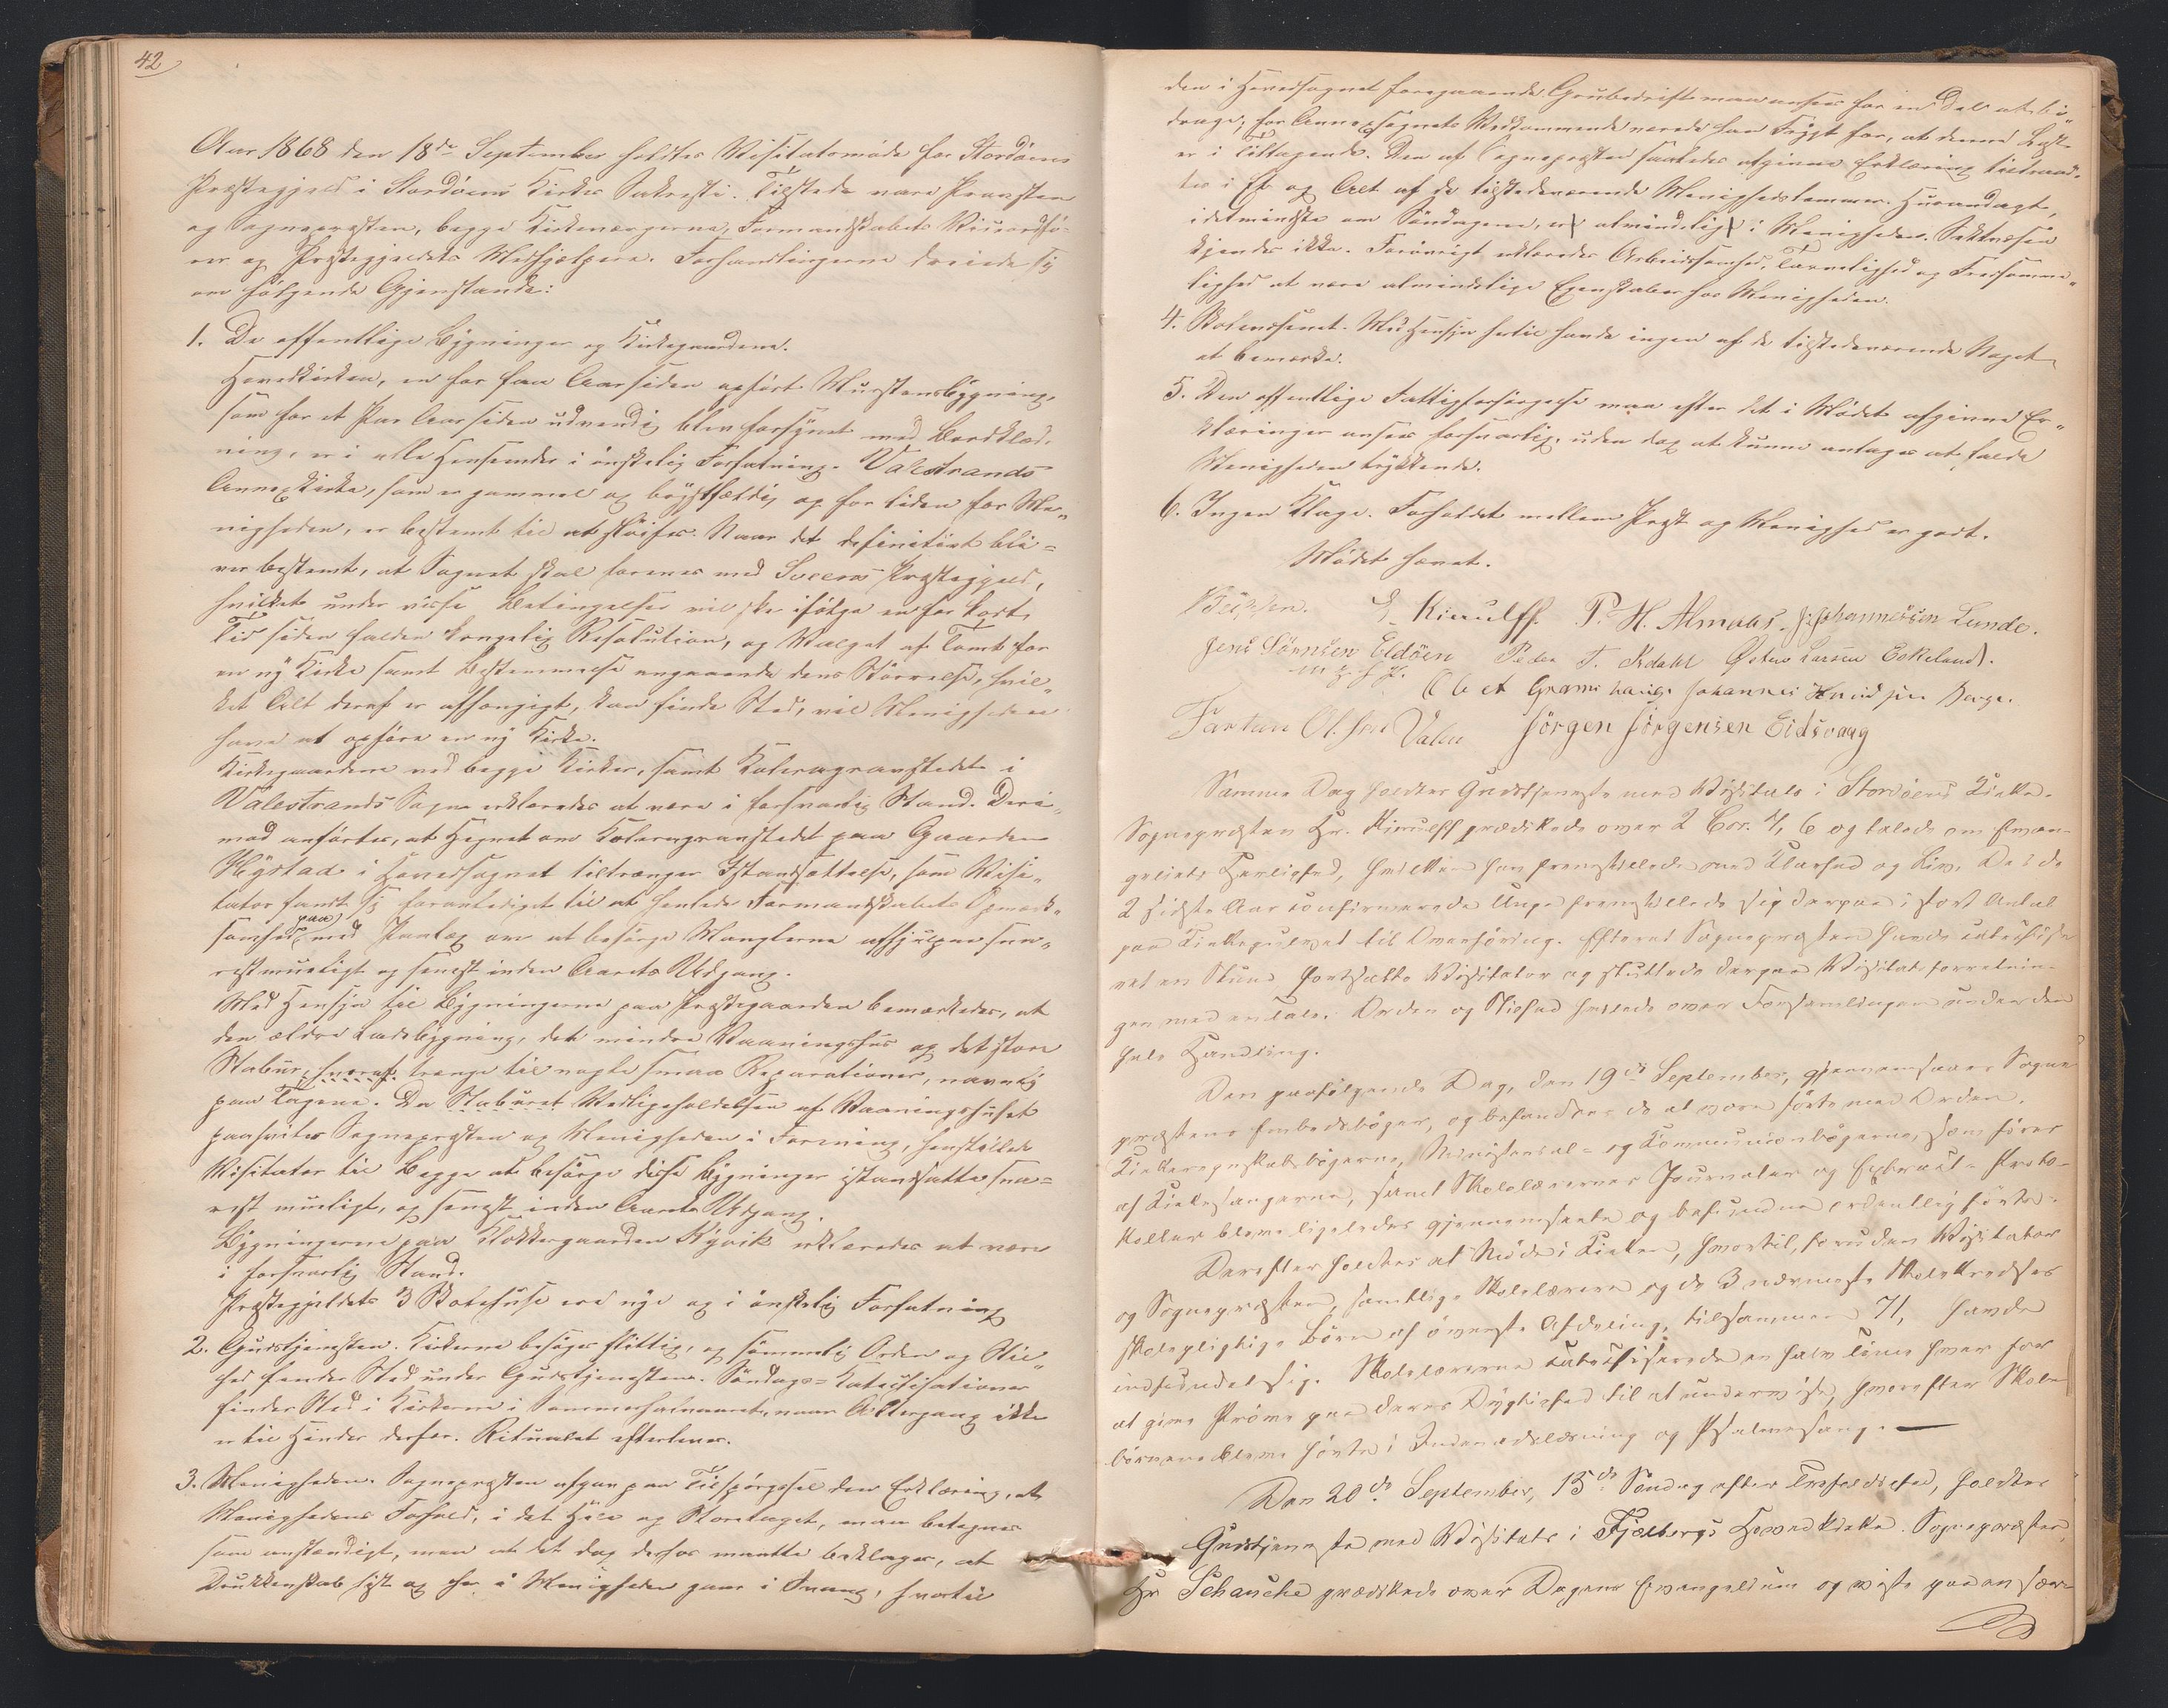 42
Aar 1868 den 18de September holdtes Visitatsmøde for Stordøens
Præstegjeld i Stordøens Kirkes Sakresti. Tilstede vare Provsten
og Sognepræsten, begge Kirkeværgerne, Formandskabets Viceordfø-
rer og Præstegjeldets Medhjælpere. Forhandlingerne dreiede sig
om følgende Gjenstande:
1. De offentlige Bygninger og Kirkegaardene.
Hovedkirken, en for faa Aar siden opført Murstensbygning,
som for et Par Aar siden udvendig blev forsynet med Bordklæd-
ning, er i alle Henseender i ønskelig Forfatning. Valestrands
Annexkirke, som er gammel og brøstfældig og for liden for Me-
nigheden, er bestemt til at sløifes. Naar det definitivt bli-
ver bestemt, at Sognet skal forenes med Sveens Præstegjeld,
hvilket under visse Betingelser vil ske ifølge en for kort
Tid siden falden kongelig Resolution, og Valget af Tomt for
en ny Kirke samt Bestemmelse angaaende dens Størrelse, hvil-
ket Alt deraf er afhængigt, kan finde Sted, vil Menigheden
have at opføre en ny Kirke.
Kirkegaardene ved begge Kirker, samt Koleragravstedet i
Valestrands Sogn erklæredes at være i forsvarlig Stand. Deri-
mod anførtes, at Hegnet om Koleragravstedet paa Gaarden
Hystad i Hovedsognet tiltrænger Istandsættelse, som Visi-
tator fandt sig foranlediget til at henlede Formandskabets Opmærk-
somhed paa, med Paalæg om at besørge Manglerne afhjulpne sna-
rest mueligt og senest inden Aarets Udgang.
Med Hensyn til Bygningerne paa Præstegaarden bemærkedes, at
den ældre Ladebygning, det mindre Vaaningshus og det store
Stabur, hvoraf trænge til nogle smaa Reparationer, navnlig
paa Tagene. Da Staburet Vedligeholdelsen af Vaaningshuset
paahviler Sognepræsten og Menigheden i Forening, henstillede
Visitator til Begge at besørge disse Bygninger istandsatte sna-
rest mueligt, og senest inden Aarets Udgang.
Bygningerne paa Klokkergaarden Rysvik erklæredes at være
i forsvarlig Stand.
Præstegjeldets 3 Skolehuse ere nye og i ønskelig Forfatning
2. Gudstjenesten. Kirkerne besøges flittig, og sømmelig Orden og Stil-
hed finder Sted under Gudstjenesten. Søndags-Katechisationer
finder Sted i Kirkerne i Sommerhalvaaret, naar Altergang ikke
er til Hinder derfor. Ritualet efterleves.
3. Menigheden. Sognepræsten afgav paa Tilspørgsel den Erklæring, at
Menighedens Forhold, i det Hele og Store taget, maa betegnes
som anstændigt, men at det dog derhos maatte beklages, at
Drukkenskab hist og her i Menigheden gaar i Svang, hvortil
den i Hovedsognet foregaaende Grubedrift maa ansees for en Deel at bi-
drage; for Annexsognets Vedkommende nærede han Frygt for, at denne Last
er i Tiltagende. Den af Sognepræsten saaledes afgivne Erklæring tiltraad-
tes i Et og Alt af de tilstedeværende Menighedslemmer. Huusandagt,
idetmindste om Søndagene, er almindelig i Menigheden. Sektvæsen
kjendes ikke. Forøvrigt erklæredes Arbeidsomhed, Tarvelighed og Fredsomme-
lighed at være almindelige Egenskaber hos Menigheden.
4. Skolevæsenet. Med Hensyn hertil havde ingen af de tilstedeværende Noget
at bemærke.
5. Den offentlige Fattigforsørgelse maa efter det i Mødet afgivne Er-
klæringer ansees forsvarlig, uden dog at kunne antages at falde
Menigheden trykkende.
6. Ingen Klage. Forholdet mellem Præst og Menighed er godt.
Mødet hævet.
Kierulff. P. H. Almaas. J. Johannessen Lunde.
Jens Sørnsen Eldøen Peder T. Østen Larsen Eskeland.
m. p. P.
Johannes Berge.
Tartun Ol. sen Valen Jørgen Jørgensen Eidsvaag
Samme Dag holdtes Gudstjeneste med Visitats i Stordøens Kirke.
Sognepræsten Hr. Kierulff prædikede over 2 Cor. 4, 6 og talede om Evan-
geliets Herlighed, hvilken han fremstillede med Klarhed og Liv. De i de
2 sidste Aar confirmerede Unge fremstillede sig derpaa i stort Antal
paa Kirkegulvet til Overhøring. Efterat Sognepræsten havde catechise-
ret en Stund fortsatte Visitator og sluttede derpaa Visitatsforretnin-
gen med en Tale. Orden og Stilhed hvilede over Forsamlingen under den
hele Handling.
Den paafølgende Dag, den 19de September, gjennemsaaes Sogne-
præstens Embedsbøger, og befandtes de at være førte med Orden.
Kirkeregnskabsbøgerne, Ministerial- og Communionbøgerne, som føres
af Kirkesangerne, samt Skolelærernes Journaler og Extract-Proto-
koller bleve ligeledes gjennemseete og befundne ordentlig førte.
Derefter holdtes et Møde i Kirken, hvortil, foruden Visitator
og Sognepræsten, samtlige Skolelærere og de 3 nærmeste Skolekredses
skolepligtige Børn af øverste Afdeling, tilsammen 71, havde
indfundet sig. Skolelærerne catechiserede en halv Time hver for
at give Prøve paa deres Dygtighed til at undervise, hvorefter Skole-
børnene bleve hørte i Indenadslæsning og Psalmesang. —
Den 20de September, 15de Søndag efter Trefoldighed, holdtes
Gudstjeneste med Visitats i Fjelbergs Hovedkirke. Sognepræsten,
Hr Schanche prædikede over Dagens Evangelium og viste paa en sær-